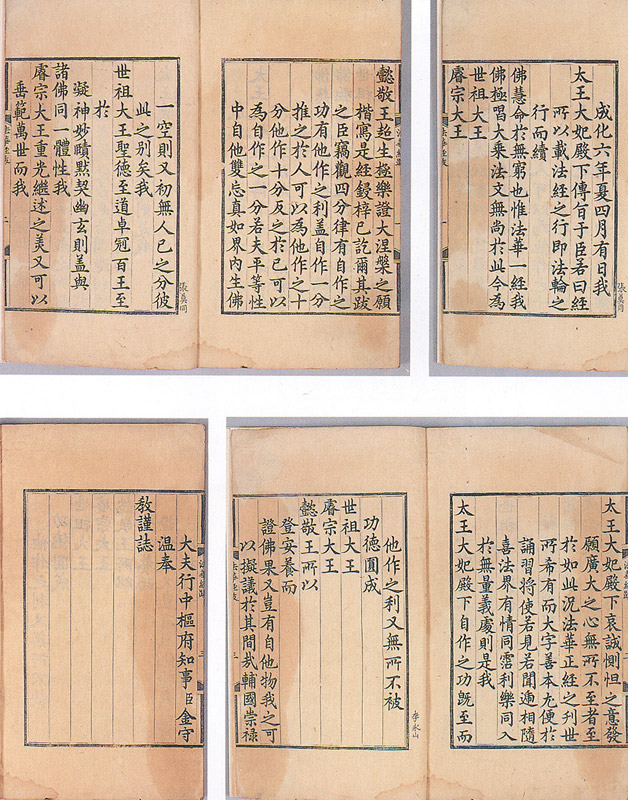 成化六年夏四月有日我
太王大妃殿下傳旨于臣若曰經
所以載法經之行即法輪之
行而續
佛慧命於無窮也惟法華一經我
佛極唱大乘法文無尚於此今為
世祖大王
睿宗大王
張莫同
懿敬王超生極樂證大涅槃之願
楷寫是經鋟梓已訖爾其跋
之臣竊觀四分律有自作之
功有他作之利盖自作一分
推之於人可以為他作之十
分他作十分反之於己可以
為自作之一分若夫平等性
中自他雙忘真如界內生佛
一空則又初無人己之分彼
此之別矣我
世祖大王聖德至道卓冠百王至
於
凝神妙賾默契幽玄則盖與
諸佛同一體性我
睿宗大王重光繼述之美又可以
垂範萬世而我
張莫同
太王大妃殿下哀誠惻怛之意發
願廣大之心無所不至者至
於如此況法華正經之刊世
所希有而大字善本尤便於
誦習將使若見若聞遞相隨
喜法界有情同霑利樂同入
於無量義處則是我
太王大妃殿下自作之功旣至而
他作之利又無所不被
功德圓成
世祖大王
睿宗大王
懿敬王所以
登安養而
證佛果又豈有自他物我之可
以擬議於其間㢤輔國崇祿
李永山
大夫行中樞府知事臣金守
溫奉
教謹誌